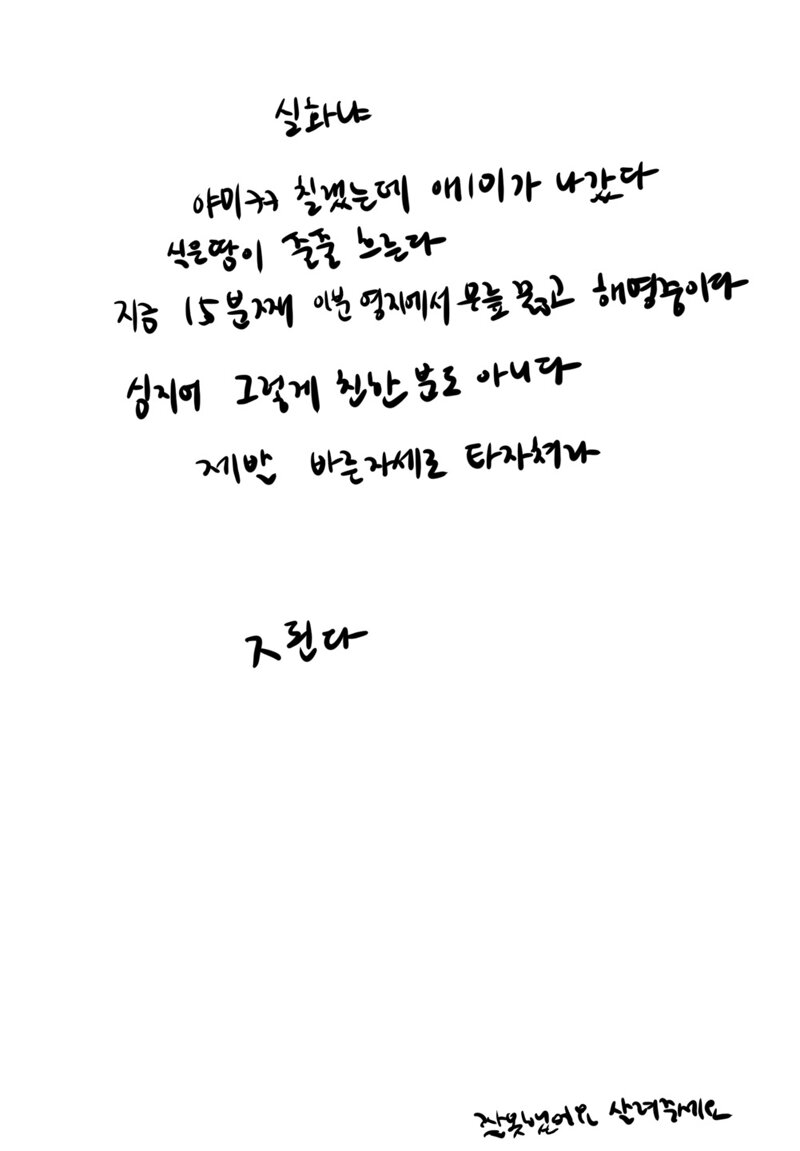 실화냐
야미ㅋㅋ 칠랬는데 애ㅣ미가 나갔다
식은땅이 줄줄 흐른다
지금 15분째 이분 영지에서 무릎 꿇고 해명중이다
심지어 그렇게 친한 분도 아니다
제발 바른자세로 타자쳐라
ㅈ된다
잘못했어요 살려주세요